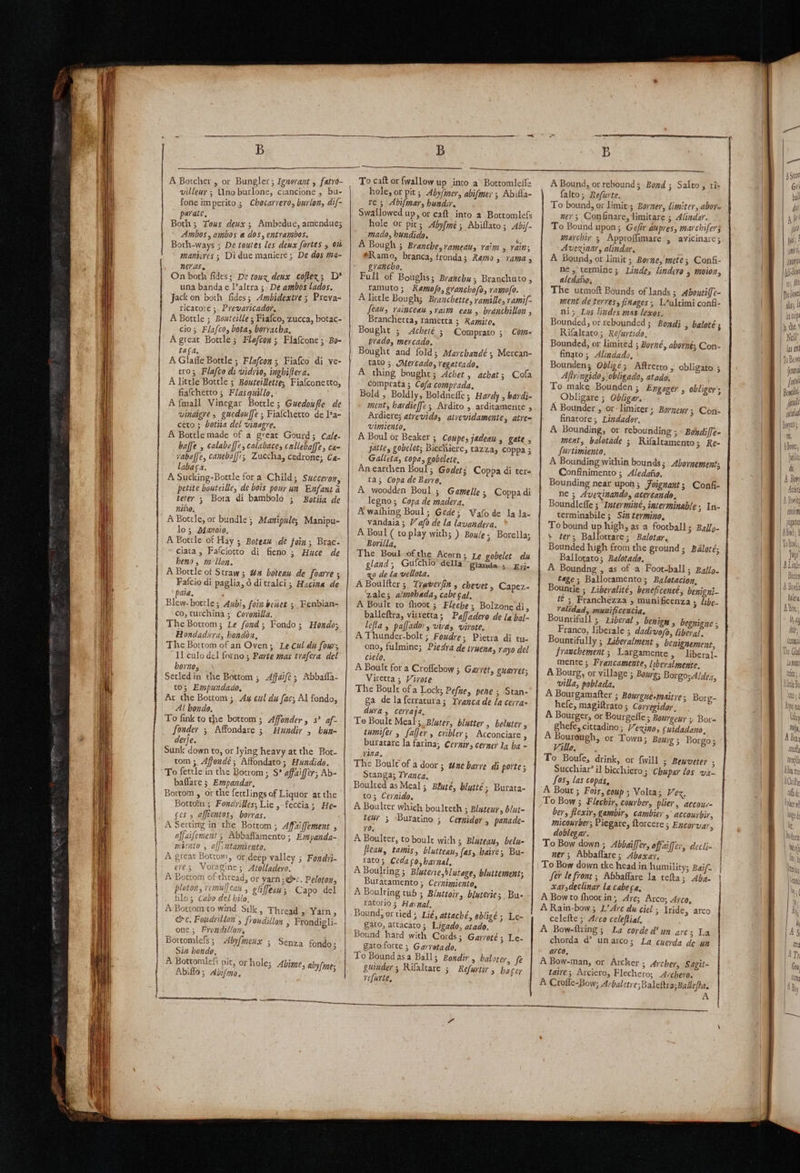 B
B
B
A Botcher , or Bungler ; Ignorant , fatro-
villeur ; Uno burlone, ciancione , bu-
fone imperito ; Chocarrero, burlon, dis-
parate.
Both ; Tous deux ; Ambedue, amendue;
Ambos, ambos a dos, entrambos.
Both-ways ; De toutes les deux sortes , ou
manieres ; Di due maniere ; De dos ma-
neras.
On both sides ; De tous deux costez ; D'
una banda e l'altra ; De ambos lados.
Jack on both sides ; Ambidextre ; Preva-
ricatore ; Prevaricador.
A Bottle ; Bouteille ; Fiasco, zucca, botac-
cio ; Flasco, bota, borracha.
A great Bottle ; Flascon ; Flascone ; Bo-
taça.
A Glasse Bottle ; Flascon ; Fiasco di ve-
tro ; Flasco di vidrio, inghistera.
A little Bottle ; Bouteillette; Fiasconetto,
fiaschetto ; Flasquillo.
A small Vinegar Bottle ; Guedousle de
vinaigre , guedousse ; Fiaschetto de l'a-
ceto ; botija del vinagre.
A Bottle made of a great Gourd ; Cale-
basse , calabesse, calabace, callebasse, ca-
rabasse, canebasse; Zuccha, cedrone; Ca-
labaça.
A Sucking-Bottle for a Child ; Succeron,
petite bouteille, de bois pour un Enfant à
teter ; Bota di bambolo ; Botija de
niño.
A Bottle, or bundle ; Manipule; Manipu-
lo ; Manoio.
A Bottle of Hay ; Boteau de foin ; Brac-
ciata , Fasciotto di fieno ; Huce de
heno , mollon.
A Bottle of Straw ; Un boteau de foarre ;
Fascio di paglia, ò di tralci ; Hacina de
paia.
Blew-bottle ; Aubi, foin bruet ; Fenbian-
co, turchina ; Coronilla.
The Bottom ; Le fond ; Fondo ; Hondo;
Hondadura, hondon.
The Bottom of an Oven ; Le Cul du four;
Il culo del forno ; Parte mas trasera del
horno.
Setled in the Bottom ; Affaissé ; Abbassa-
to ; Empandado.
At the Bottom ; Au cul du sac; Al fondo,
Al hondo.
To sink to the bottom ; Affonder , s' af-
fonder ; Affondare ; Hundir , hun-
derse.
Sunk down to, or lying heavy at the Bot-
tom ; Affondé ; Affondato ; Hundido.
To settle in the Bottom ; S' affaisser; Ab-
bassare ; Empandar.
Bottom , or the settlings of Liquor at the
Bottom ; Fondrilles; Lie , feccia ; He-
ces , assientos, borras.
A Setting in the Bottom ; Affaissement ,
affaissement ; Abbassamento ; Empanda-
miento , assentamiento.
A great Bottom, or deep valley ; Fondri-
ere ; Voragine ; Atolladero.
A Bottom of thread, or yarn ; &c. Peloton,
pleton, remusseau , glisseau ; Capo del
filo ; Cabo del hilo.
A Bottom to wind Silk, Thread , Yarn,
&c. Fondrillon , frondillon , Frondigli-
one ; Frondillon.
Bottomless ; Abysmeux ; Senza fondo;
Sin hondo.
A Bottomless pit, or hole; Abisme, abysme;
Abisso ; Abismo.
To cast or swallow up into a Bottomlesse
hole, or pit ; Abysmer, abismer ; Abissa-
re ; Abismar, hundir.
Swallowed up, or cast into a Bottomless
hole or pit; Abysmé ; Abissato ; Abis-
mado, hundido.
A Bough ; Branche, rameau, raim , rain;
Ramo, branca, fronda ; Ramo , rama ,
grancho.
Full of Boughs; Branchu ; Branchuto ,
ramuto ; Ramoso, granchoso, ramoso.
A little Bough; Branchette, ramille, ramis-
seau, rainceau , raim eau , branchillon ,
Branchetta, rametta ; Ramito.
Bought ; Acheté ; Comprato ; Com-
prado, mercado.
Bought and sold; Marchandé ; Mercan-
tato ; Mercado, regateado.
A thing bought; Achet , achat; Cosa
comprata ; Cosa comprada.
Bold , Boldly, Boldnesse ; Hardy , hardi-
ment, hardiesse ; Ardito , arditamente ,
Ardiere; atrevido, atrevidamente, atre-
vimiento.
A Boul or Beaker ; Coupe, jadeau , gate ,
jatte, gobelet; Bicchiere, tazza, coppa ;
Galleta, copa, gobelete.
An earthen Boul; Godet; Coppa di ter-
ra ; Copa de Barro.
A wooden Boul ; Gamelle ; Coppa di
legno ; Copa de madera.
A washing Boul; Gede ; Vaso de la la-
vandaia ; Vaso de la lavandera.
A Boul ( to play with; ) Boule ; Borella;
Borilla.
The Boul of the Acorn ; Le gobelet du
gland ; Guschio della gianda ; Eri-
zo de la vellota.
A Boulster ; Traversin , chevet , Capez-
zale ; almohada, cabeçal.
A Boult to shoot ; Fleche ; Bolzone di,
ballestra, virretta ; Passadero de la bal-
lesta , passador , vira, virote.
A Thunder-bolt ; Foudre ; Pietra di tu-
ono, fulmine; Piedra de trueno, rayo del
cielo.
A Boult for a Crossebow ; Garrot, guarrot;
Viretta ; Virote
The Boult of a Lock; Pesne, pene ; Stan-
ga de la serratura ; Tranca de la cerra-
dura , cerraja.
To Boult Meal ; Bluter, blutter , beluter ,
tumiser , sasser , cribler ; Acconciare ,
buratare la farina; Cernir, cerner la ha-
rina.
The Boult of a door ; Une barre di porte;
Stanga; Tranca.
Boulted as Meal ; Bluté, blutté ; Burata-
to ; Cernido.
A Boulter which boulteth ; Bluteur, blut-
teur ; Buratino ; Cernidor , panade-
ro.
A Boulter, to boult with ; Bluteau, belu-
steau, tamis, blutteau, sas, haire ; Bu-
rato ; Cedaço, harnal.
A Boulting ; Bluterie, blutage, bluttement;
Buratamento ; Cernimiento.
A Boulting tub ; Bluttoir, bluterie; Bu-
ratorio ; Harnal.
Bound, or tied ; Lié, attaché, obligé ; Le-
gato, attacato ; Ligado, atado.
Bound hard with Cords; Garroté ; Le-
gato forte ; Garrotado.
To Bound as a Ball; Bondir , baloter, se
guinder ; Risaltare ; Resurtir , hazer
resurte.
A Bound, or rebound ; Bond ; Salto , ri-
salto ; Resurte.
To bound, or limit ; Borner, limiter, abor-
ner ; Confinare, limitare ; Alindar.
To Bound upon ; Gesir aupres, marchiser;
marchir ; Approssimare , avicinare;
Avezinar, alindar.
A Bound, or limit ; Borne, mete ; Confi-
ne , termine ; Linde, lindero , mojon,
aledaño.
The utmost Bounds of lands ; Aboutisse-
ment de terres, finages ; L'ultimi confi-
ni ; Los lindes mas lexos.
Bounded, or rebounded ; Bondi , baloté ;
Risaltato ; Resurtido.
Bounded, or limited ; Borné, aborné; Con-
finato ; Alindado.
Bounden; Obligé ; Astretto , obligato ;
Astringido, obligado, atado.
To make Bounden ; Engager , obliger ;
Obligare ; Obligar.
A Bounder , or limiter ; Borneur ; Con-
finatore ; Lindador.
A Bounding, or rebounding ; Bondisse-
ment, balotade ; Risaltamento ; Re-
surtimiento.
A Bounding within bounds; Abornement;
Confinimento ; Aledaño.
Bounding near upon ; Joignant ; Confi-
ne ; Avezinando, acercando.
Boundlesse ; Interminé, interminable ; In-
terminabile ; Sin termino.
To bound up high, as a football ; Ballo-
ter ; Ballottare ; Balotar.
Bounded high from the ground ; Baloté;
Ballotato ; Balotado.
A Boundng , as of a Foot-ball ; Ballo-
tage ; Ballotamento ; Balotacion.
Bountie ; Liberalité, beneficenté, benigni-
té ; Franchezza , munificenza ; libe-
ralidad, munificencia.
Bountifull ; Liberal , benign , begnigne ;
Franco, liberale ; dadivoso, liberal.
Bountifully ; Liberalment , benignement,
franchement ; Largamente , liberal-
mente ; Francamente, liberalmente.
A Bourg, or village ; Bourg; Borgo; Aldea,
villa, poblada.
A Bourgamaster ; Bourgue-maitre ; Borg-
hese, magistrato ; Corregidor.
A Bourger, or Bourgesse ; Bourgeur ; Bor-
ghese, cittadino ; Vezino, ciudadano.
A Bourough, or Town; Bourg ; Borgo ;
Villa.
To Bouse, drink, or swill ; Beuveter ;
Succhiar' il bicchiero ; Chupar los va-
sos, las copas.
A Bout ; Fois, coup ; Volta; Vez.
To Bow ; Flechir, courber, plier , accour-
ber, flexir, cambir, cambier , accourbir,
micourber; Piegare, storcere ; Encorvar,
doblegar.
To Bow down ; Abbaisser, affaisser, decli-
ner ; Abbassare ; Abaxar.
To Bow down the head in humility; Bais-
ser le front ; Abbassare la testa ; Aba-
xar, declinar la cabeça.
A Bow to shoot in ; Arc; Arco; Arco.
A Rain-bow ; L'Arc du ciel ; Iride, arco
celeste ; Arco celestial.
A Bow-string ; La corde d' un arc ; La
chorda d' un arco ; La cuerda de un
arco.
A Bow-man, or Archer ; Archer, Sagit-
taire ; Arciero, Flechero; Archero.
A Crosse-Bow; Arbalstre; Balestra; Ballesta.
A